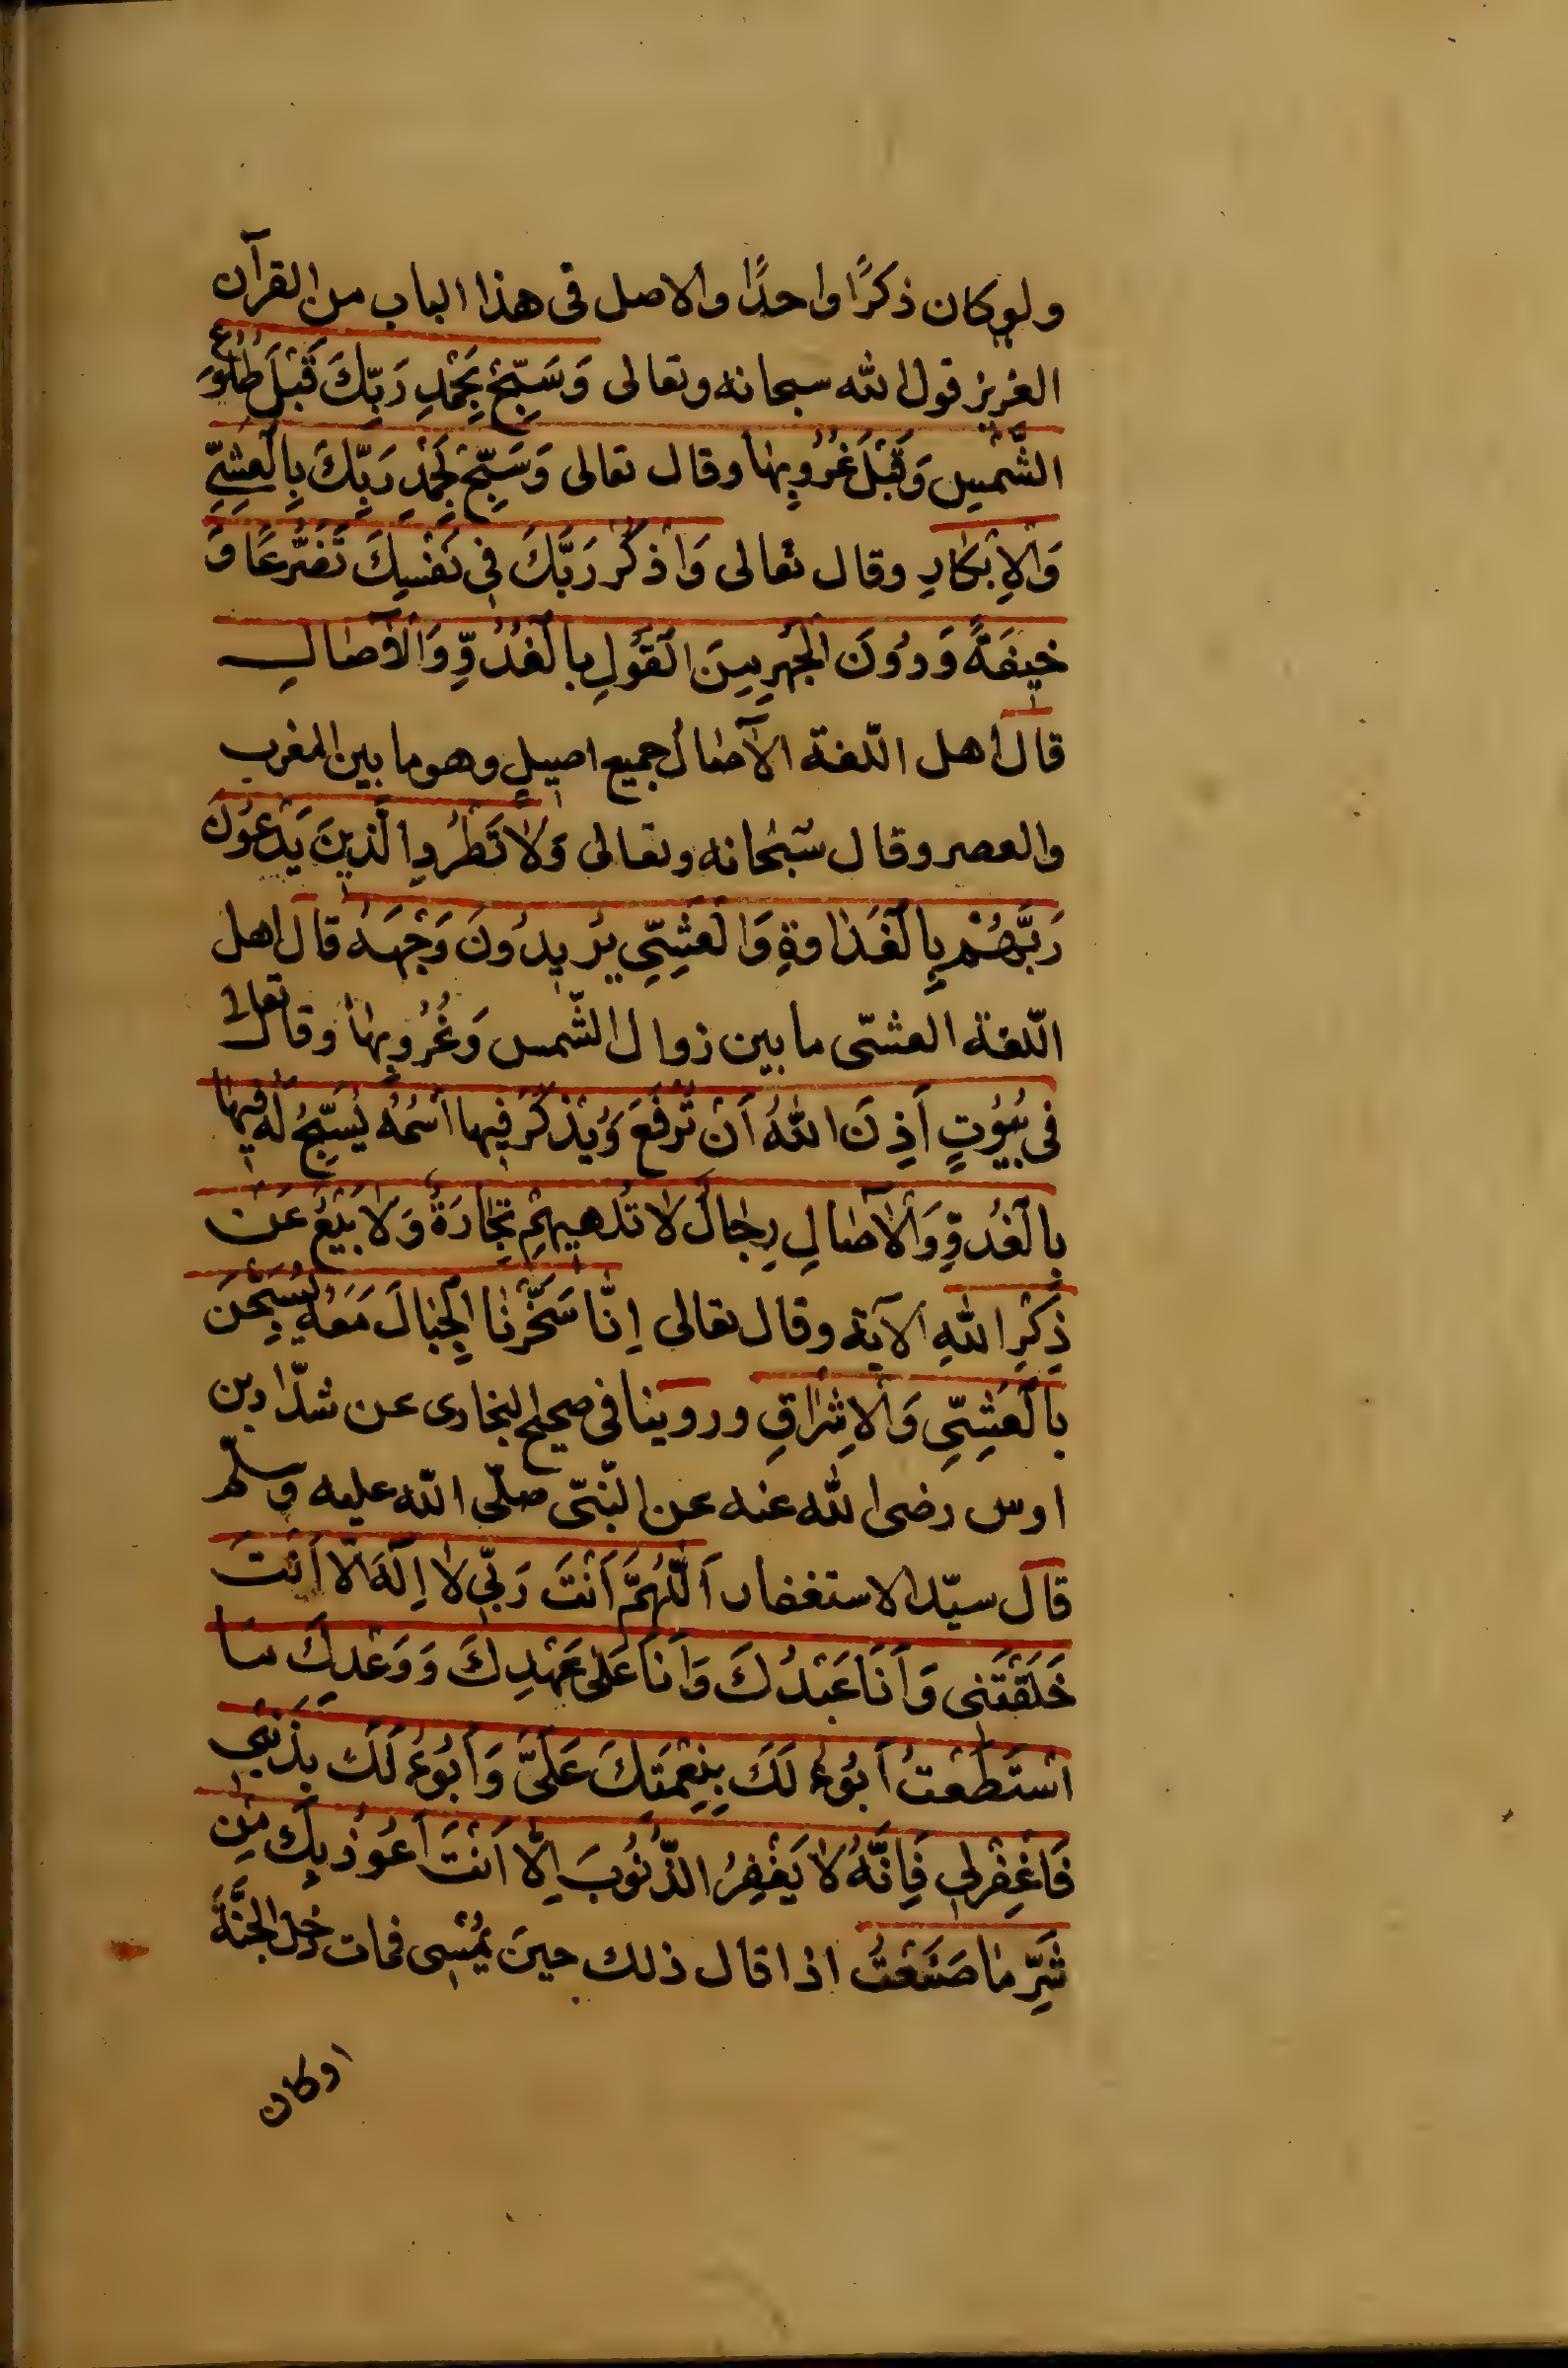 ولو كان ذكرًا واحدًا والاصل فى هذا الباب من القرآن
العزيز قول الله سبحانه وتعالى وَسَبِّحْ بِحَمْدِ رَبِّكَ قَبْلَ طُلُوعِ
الشَّمْسِ وَقَبْلَ غُرُوبِهَا وقال تعالى وَسَبِّحْ بِحَمْدِ رَبِّكَ بِالْعَشِيِّ
وَالْاِبْكَارِ وقال تعالى وَاذْكُرْ رَبَّكَ فِى نَفْسِكَ تَضَرُّعًا وَ
خِيفَةً وَدُونَ الْجَهْرِ مِنَ الْقَوْلِ بِالْغُدُوِّ وَالْآصَالِ
قال اهل اللّغة الآصال جميع اصيلٍ وهو ما بين المغرب
والعصر وقال سُبْحَانه وتعالى وَلَا تَطْرُدِ الَّذِينَ يَدْعُونَ
رَبَّهُمْ بِالْغَدَاوةِ وَالْعَشِيِّ يُرِيدُونَ وَجْهَهُ قال اهل
اللّغة العشىّ ما بين زوال الشّمس وَغُرُوبِهَا وقال تعالى
فى بُيُوتٍ اَذِنَ اللّٰهُ اَنْ تُرْفَعَ وَيُذْكَرَ فِيهَا اسْمُهُ يُسَبِّحُ لَهُ فِيهَا
بِالْغُدُوِّ وَالْآصَالِ رِجَالٌ لَا تُلْهِيهِمْ تِجَارَةٌ وَلَا بَيْعٌ عَنْ
ذِكْرِ اللّٰهِ الآية وقال تعالى اِنَّا سَخَّرْنَا الْجِبَالَ مَعَهُ يُسَبِّحْنَ
بِالْعَشِيِّ وَالْاِشْرَاقِ وروينا فى صحيح البخارى عن شدّاد بن
اوس رضى الله عنه عن النّبىّ صلّى الله عليه وسلّم
قال سيّد الاستغفار اَللّٰهُمَّ اَنْتَ رَبِّى لَا اِلٰهَ اِلَّا اَنْتَ
خَلَقْتَنِى وَاَنَا عَبْدُكَ وَاَنَا عَلَى عَهْدِكَ وَوَعْدِكَ مَا
اسْتَطَعْتُ اَبُوءُ لَكَ بِنِعْمَتِكَ عَلَىَّ وَاَبُوءُ لَكَ بِذَنْبِى
فَاغْفِرْ لِى فَاِنَّهُ لَا يَغْفِرُ الذُّنُوبَ اِلَّا اَنْتَ اَعُوذُ بِكَ مِنْ
شَرِّ مَا صَنَعْتُ اذا قال ذلك حينَ يُمْسِى فمات دخل الجنَّةَ
اوكان